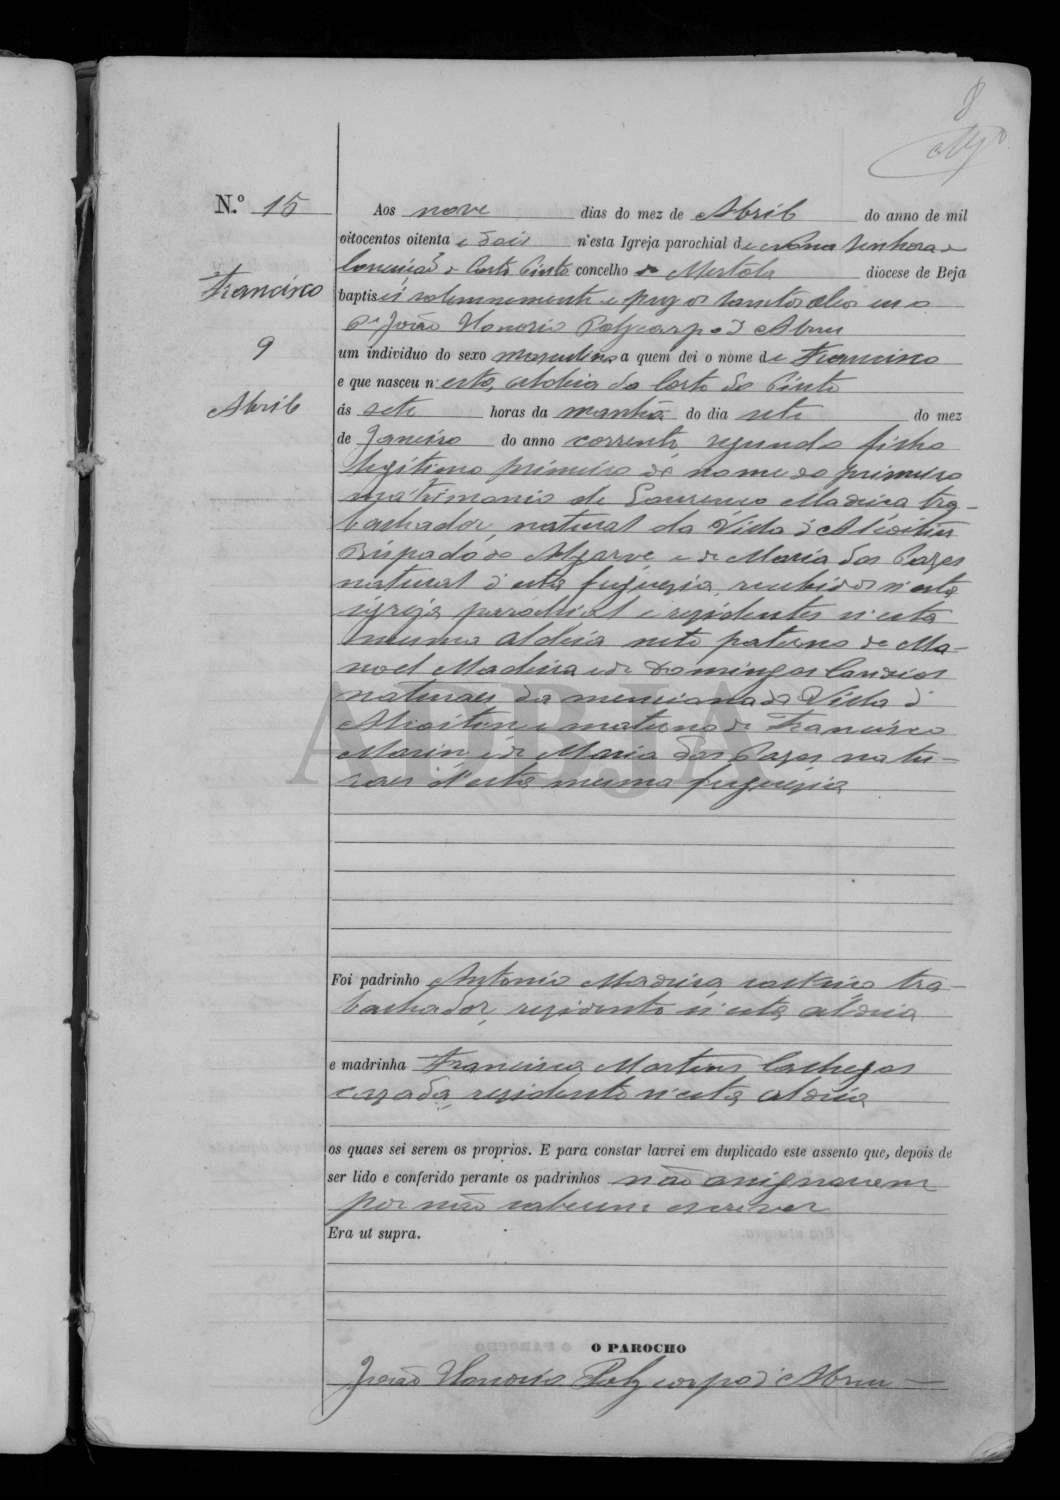 8
N.º 15
Francisco
9
Abril
Aos nove dias do mez de Abril do anno de mil
oitocentos oitenta e dois n'esta Igreja parochial de Nossa Senhora da
Conceição de Corte Pinto concelho de Mertola diocese de Beja
baptisei solemnemente e puz os santos oleos eu o
P.e João Honorio Polycarpo d'Abreu
um individuo do sexo masculino a quem dei o nome de Francisco
e que nasceu n'esta aldeia da Corte do Pinto
ás sete horas da manhã do dia sete do mez
de Janeiro do anno corrente, segundo filho
legitimo primeiro do nome do primeiro
matrimonio de Lourenço Madeira tra-
balhador, natural da Villa d'Alcoitim
Bispado do Algarve e de Maria dos Pazes
natural d'esta freguezia, recebidos n'esta
igreja parochial e residentes n'esta
mesma aldeia neto paterno de Ma-
noel Madeira e de Domingas
naturaes da mencionada Villa d'
Alcoitim e materno de Francisco
Marin e de Maria dos Pazes natu-
raes d'esta mesma freguezia
Foi padrinho Antonio Madeira, solteiro tra-
balhador, residente n'esta aldeia
e madrinha Francisca Martins
cazada, residente n'esta aldeia
os quaes sei serem os proprios. E para constar lavrei em duplicado este assento que, depois de
ser lido e conferido perante os padrinhos não assignarem
por não saberem escrever
Era ut supra.
O PAROCHO
João Honorio Polycarpo d'Abreu